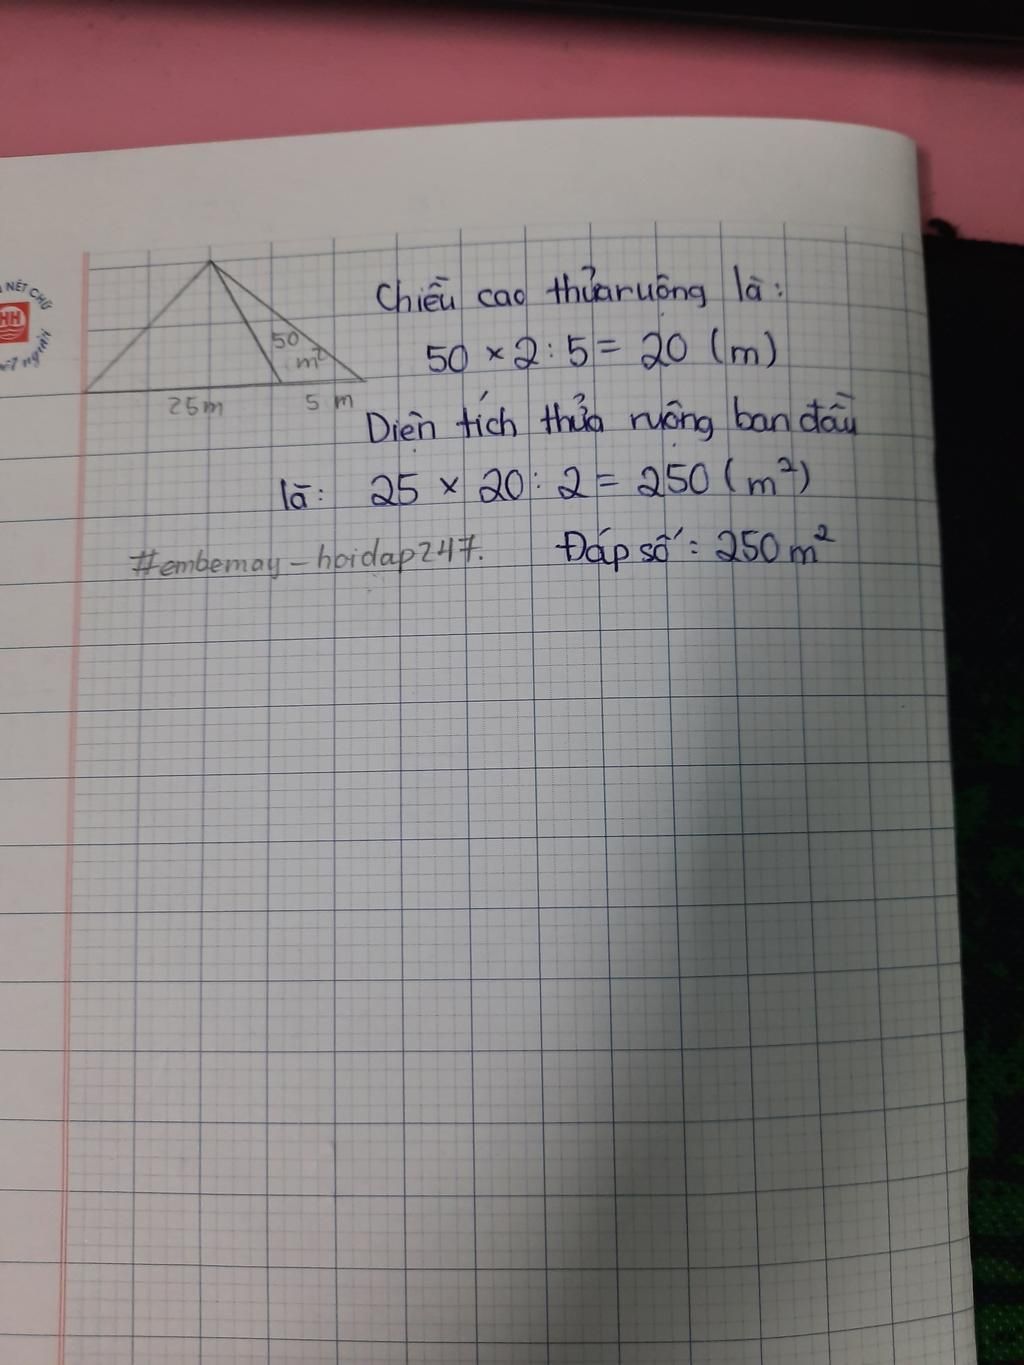 NÉT CHỮ
HH
50
m²
25m
5 m
Chiều cao thửa ruộng là:
50 × 2 : 5 = 20 (m)
Diện tích thửa ruộng ban đầu
là: 25 × 20 : 2 = 250 (m²)
#embemay_hoidap247.
Đáp số: 250 m²